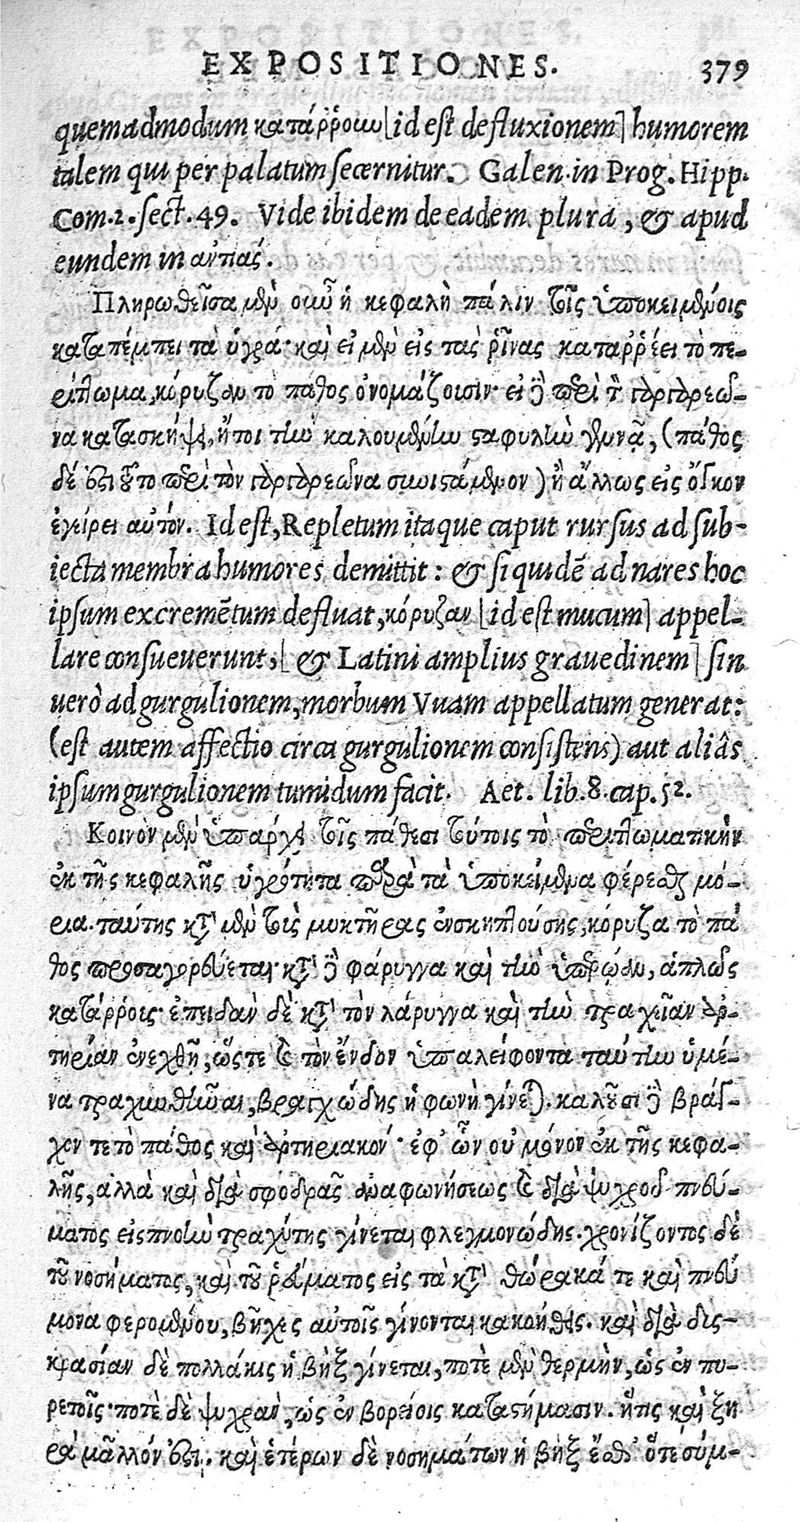 EXPOSITIONES. 379
quemadmodum κατάρροιω [id est defluxionem] humorem
talem qui per palatum secernitur. Galen. in Prog. Hipp.
Com. 2. sect. 49. Vide ibidem de eadem plura, & apud
eundem in αντιας.
Πληρωθεῖσα μὲν οὖν ἡ κεφαλὴ πάλιν τοῖς ὑποκειμένοις
καταπέμπει τὰ ὑγρά· καὶ εἰ μὲν εἰς τὰς ῥῖνας καταῤῥέει τὸ πε-
ρίττωμα, κόρυζαν τὸ πάθος ὀνομάζουσιν· εἰ δὲ περὶ τὸν γαργαρεῶ-
να κατασκήψει, ἤτοι τὴν καλουμένην σταφυλὴν γεννᾷ, (πάθος
δέ ἐστι τοῦτο περὶ τὸν γαργαρεῶνα συνιστάμενον) ἢ ἄλλως εἰς ὄγκον
ἐγείρει αὐτόν. Id est, Repletum itaque caput rursus ad sub-
iecta membra humores demittit: & si quidẽ ad nares hoc
ipsum excremẽtum defluat, κόρυζαν [id est mucum] appel-
lare consueuerunt, [& Latini amplius grauedinem] sin
uerò ad gurgulionem, morbum Vuam appellatum generat:
(est autem affectio circa gurgulionem consistens) aut aliâs
ipsum gurgulionem tumidum facit. Aet. lib. 8. cap. 52.
Κοινὸν μὲν ὑπάρχει τοῖς πάθεσι τούτοις τὸ περιττωματικὴν
ἐκ τῆς κεφαλῆς ὑγρότητα παρὰ τὰ ὑποκείμενα φέρεσθαι μό-
ρια. ταύτης κατὰ μὲν τοὺς μυκτῆρας ἐνσκηπτούσης, κόρυζα τὸ πά
θος προσαγορεύεται· κατὰ δὲ φάρυγγα καὶ τὴν ὑπερῴαν, ἁπλῶς
κατάρροις· ἐπειδὰν δὲ κατὰ τὸν λάρυγγα καὶ τὴν τραχεῖαν ἀρ-
τηρίαν ἐνεχθῇ, ὥστε καὶ τὸν ἔνδον ὑπαλείφοντα ταύτην ὑμέ-
να τραχυνθῆναι, βραγχώδης ἡ φωνὴ γίνεται. καλοῦσι δὲ βράγ-
χον τε τὸ πάθος καὶ ἀρτηριακόν· ἐφ' ὧν οὐ μόνον ἐκ τῆς κεφα-
λῆς, ἀλλὰ καὶ διὰ σφοδρᾶς ἀναφωνήσεως καὶ διὰ ψυχροῦ πνεύ-
ματος εἰσπνοὴν τραχύτης γίνεται φλεγμονώδης. χρονίζοντος δὲ
τοῦ νοσήματος, καὶ τοῦ ῥεύματος εἰς τὰ κατὰ θώρακά τε καὶ πνεύ
μονα φερομένου, βῆχες αὐτοῖς γίνονται κακοήθεις. καὶ διὰ δυσ-
κρασίαν δὲ πολλάκις ἡ βὴξ γίνεται, ποτὲ μὲν θερμὴν, ὡς ἐν πυ-
ρετοῖς· ποτὲ δὲ ψυχρὰν, ὡς ἐν βορείοις καταστήμασιν. ἥτις καὶ ξη
ρὰ μᾶλλόν ἐστι. καὶ ἑτέρων δὲ νοσημάτων ἡ βὴξ ἔσθ' ὅτε σύμ-